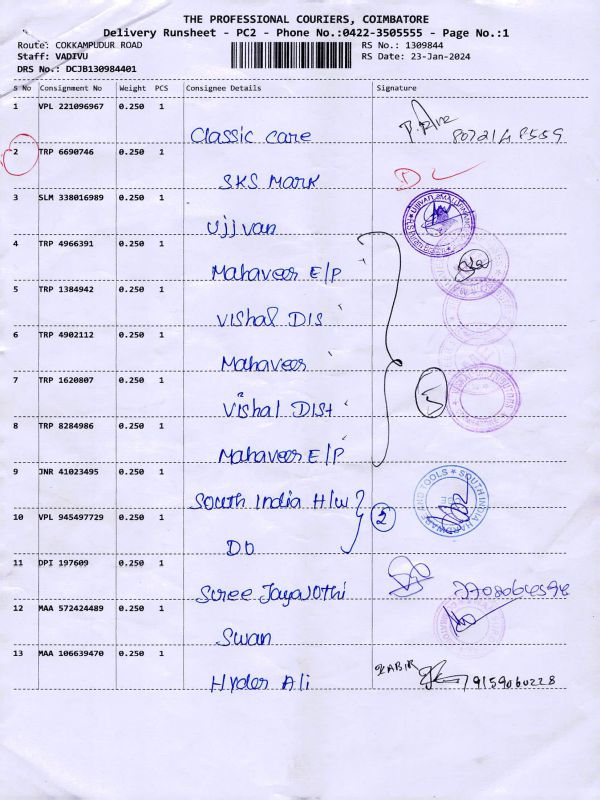 THE PROFESSIONAL COURIERS, COIMBATORE
Delivery Runsheet - PC2 - Phone No.:0422-3505555 - Page No.:1
Route: COKKAMPUDUR ROAD RS No.: 1309844
Staff: VADIVU RS Date: 23-Jan-2024
DRS No.: DCJB130984401
S No Consignment No Weight PCS Consignee Details Signature
1 VPL 221096967 0.250 1
Classic care
2 TRP 6690746 0.250 1
SKS MARK
3 SLM 338016989 0.250 1
Ujjivan
4 TRP 4966391 0.250 1
Mahaveer E/P
5 TRP 1384942 0.250 1
Vishal DIS
6 TRP 4902112 0.250 1
Mahaveer
7 TRP 1620807 0.250 1
Vishal Dist
8 TRP 8284986 0.250 1
Mahaveer E/P
9 JNR 41023495 0.250 1
South India H/W
SOUTH INDIA HARDWARE AND TOOLS
10 VPL 945497729 0.250 1
2
DO
11 DPI 197609 0.250 1
Sree Jayajothi
12 MAA 572424489 0.250 1
Swan
13 MAA 106639470 0.250 1
Hyder Ali KABIR 79159060228